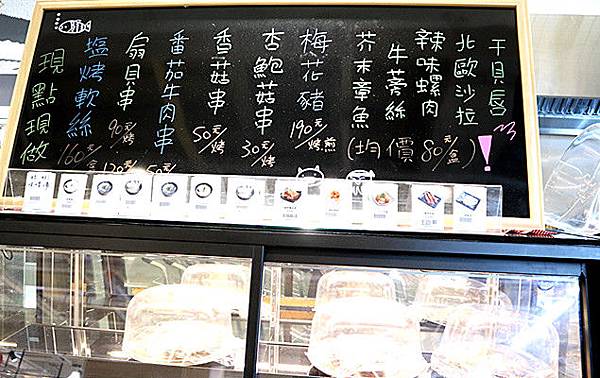 干貝唇
北歐沙拉
辣味螺肉
牛蒡絲
芥末章魚
(均價80元/盒)!
梅花豬
190元/烤煎
杏鮑菇串
30元/烤
香菇串
50元/烤
番茄牛肉串
50元
扇貝串
90元/烤
120元
塩烤軟絲
160元/盒
現點現做